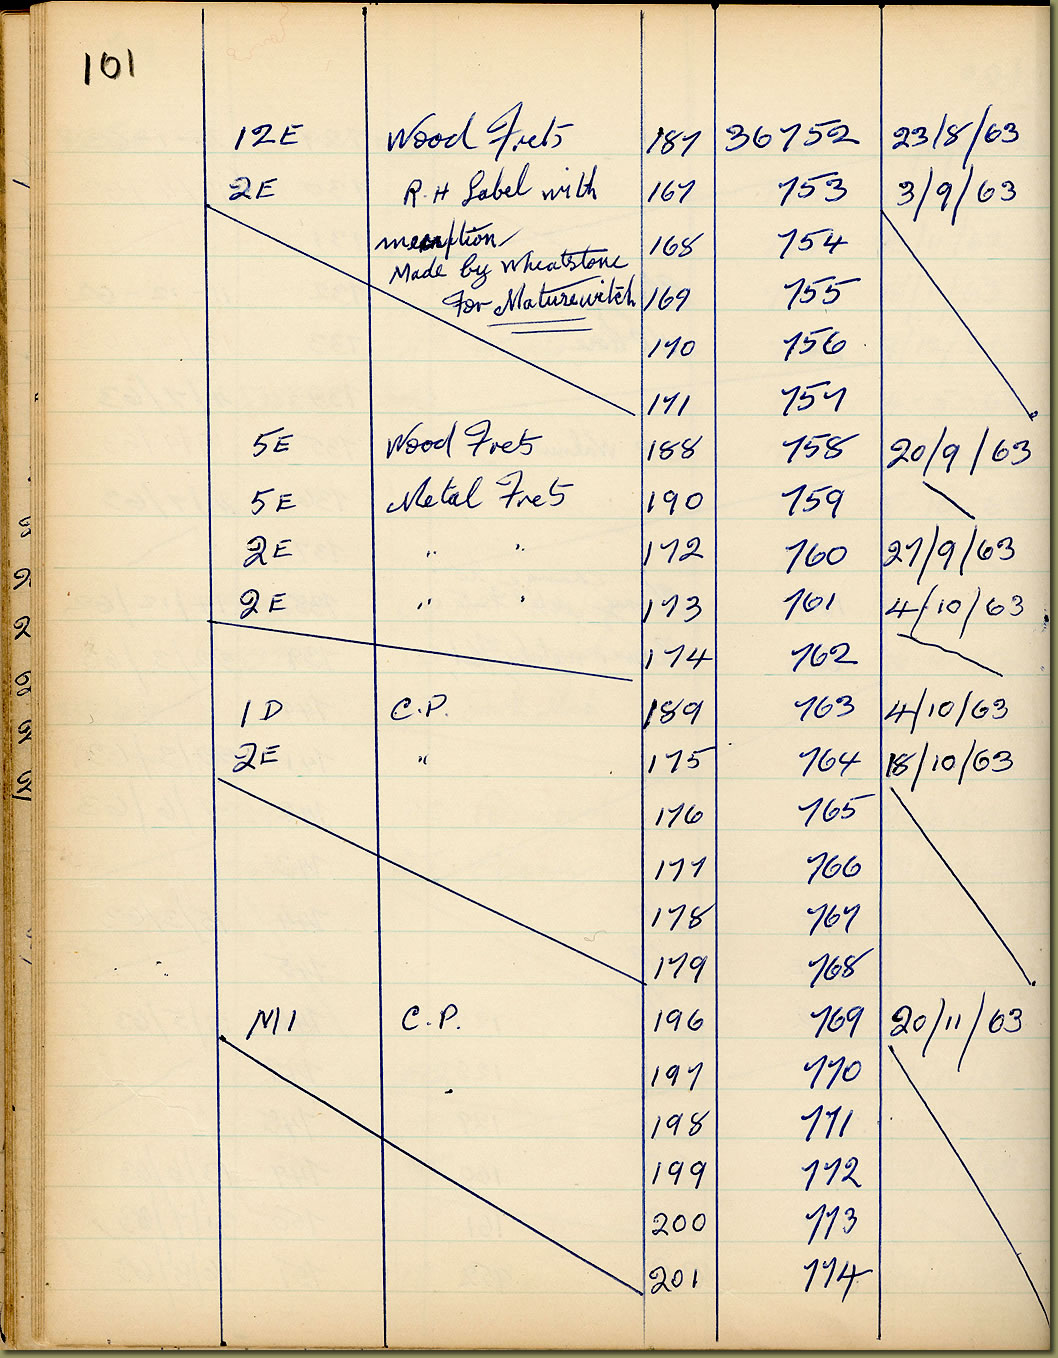 101
12E Wood Frets 187 36752 23/8/63
2E R.H Label with 167 753 3/9/63
168 754
Made by Wheatstone
For 169 755
170 756
171 757
5E Wood Frets 188 758 20/9/63
5E Metal Frets 190 759
2E " " 172 760 27/9/63
2E " " 173 761 4/10/63
174 762
1D C.P. 189 763 4/10/63
2E " 175 764 18/10/63
176 765
177 766
178 767
179 768
M1 C.P. 196 769 20/11/63
197 770
198 771
199 772
200 773
201 774